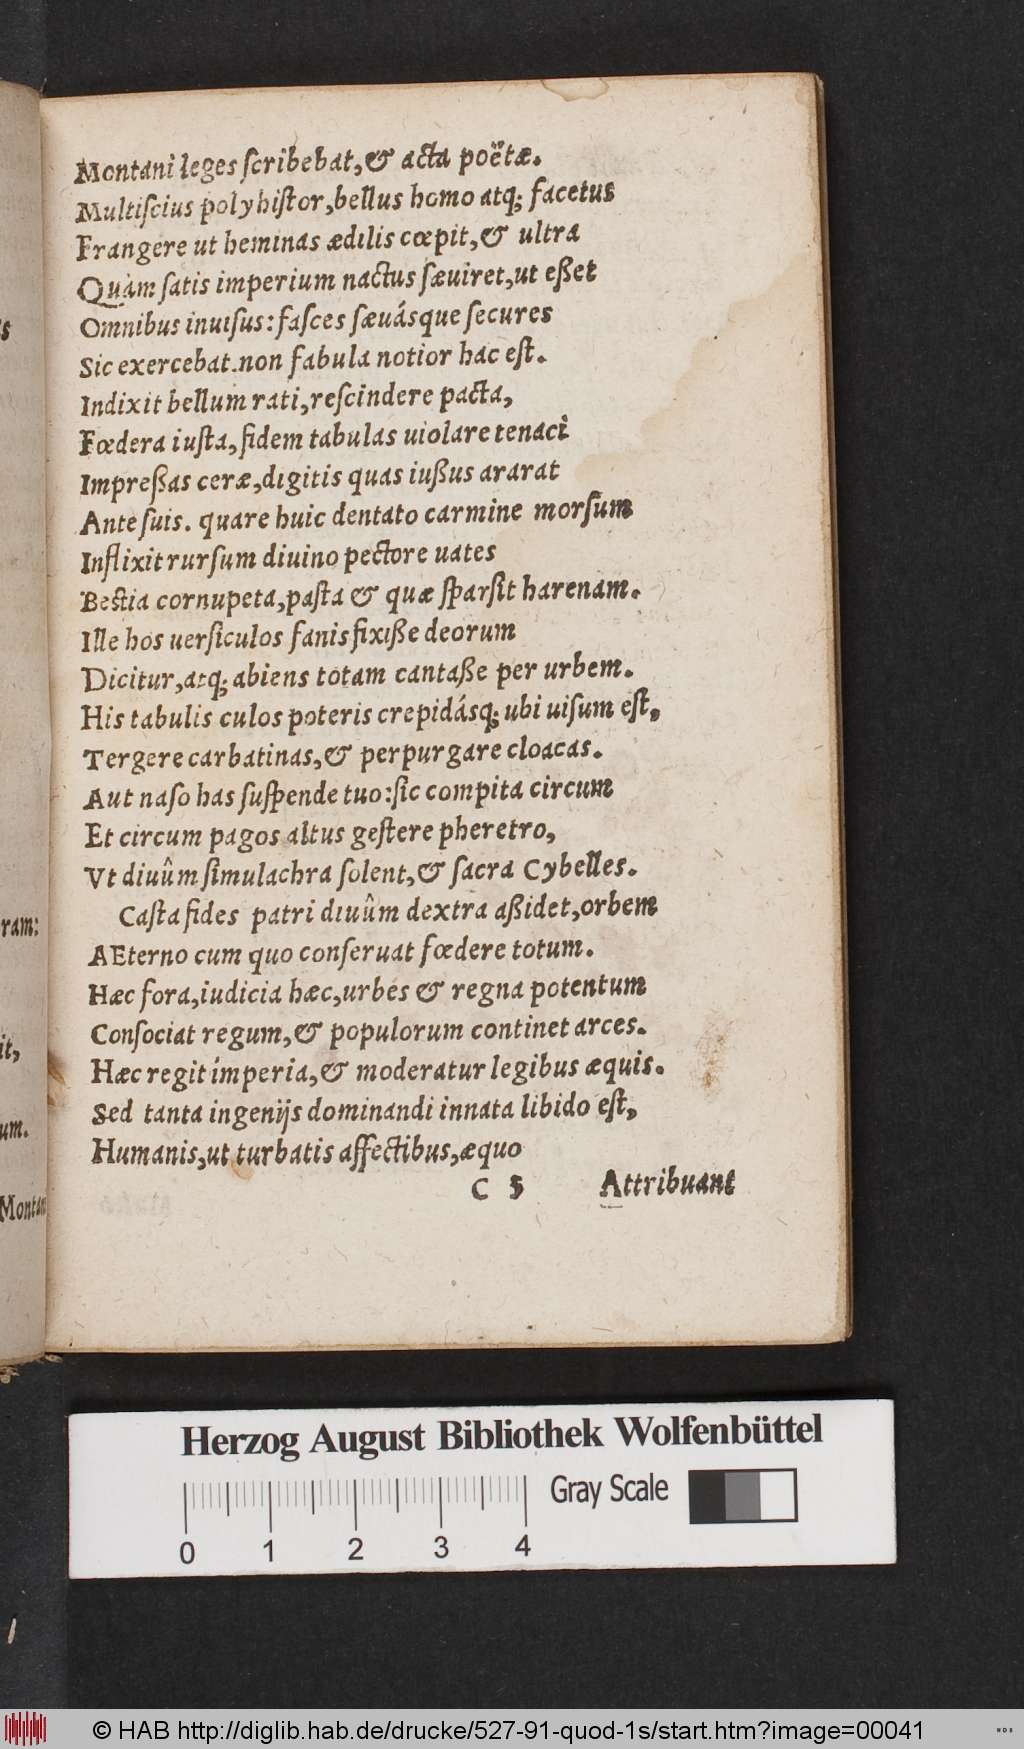 Montani leges ſcribebat, & acta poëtæ.
Multiſcius polyhiſtor, bellus homo atq; facetus
Frangere ut heminas ædilis cœpit, & ultra
Quàm ſatis imperium nactus ſæuiret, ut eßet
Omnibus inuiſus: faſces ſæuásque ſecures
Sic exercebat. non fabula notior hac eſt.
Indixit bellum rati, reſcindere pacta,
Fœdera iuſta, fidem tabulas uiolare tenaci
Impreßas ceræ, digitis quas iußus ararat
Ante ſuis. quare huic dentato carmine morſum
Inflixit rurſum diuino pectore uates
Beſtia cornupeta, paſta & quæ ſparſit harenam.
Ille hos uerſiculos fanis fixiße deorum
Dicitur, atq; abiens totam cantaße per urbem.
His tabulis culos poteris crepidásq; ubi uiſum eſt,
Tergere carbatinas, & perpurgare cloacas.
Aut naſo has ſuſpende tuo: ſic compita circum
Et circum pagos altus geſtere pheretro,
Vt diuûm ſimulachra ſolent, & ſacra Cybelles.
Caſta fides patri diuûm dextra aßidet, orbem
AEterno cum quo conſeruat fœdere totum.
Hæc fora, iudicia hæc, urbes & regna potentum
Conſociat regum, & populorum continet arces.
Hæc regit imperia, & moderatur legibus æquis.
Sed tanta ingenijs dominandi innata libido eſt,
Humanis, ut turbatis affectibus, æquo
C 5 Attribuant
ram:
it,
um.
Montani
Herzog August Bibliothek Wolfenbüttel
Gray Scale
0 1 2 3 4
© HAB http://diglib.hab.de/drucke/527-91-quod-1s/start.htm?image=00041